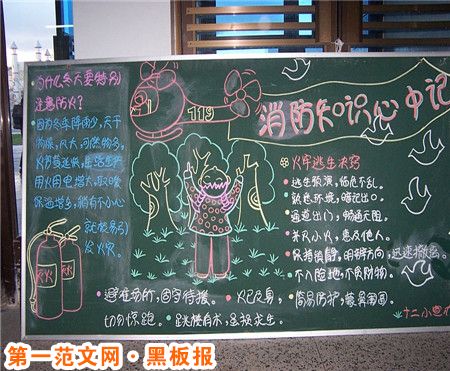 为什么冬天要特别
注意防火?
因为冬季降雨少,天干
物燥,风大,可燃物多,
火势蔓延快,生活生产
用火用电增大,取暖
保温增多,稍有不小心
就能易引
发火灾。
灭火
灭火
119
消防知识心中记
火灾逃生决窍
逃生预演,临危不乱。
熟悉环境,暗记出口。
通道出门,畅通无阻。
扑灭小火,惠及他人。
保持镇静,明辨方向,迅速撤离。
不入险地,不贪财物。
简易防护,蒙鼻匍匐。
避难场所,固守待援。
火已及身,
切勿惊跑。
跳楼有术,虽损求生。
十二小
第一范文网·黑板报